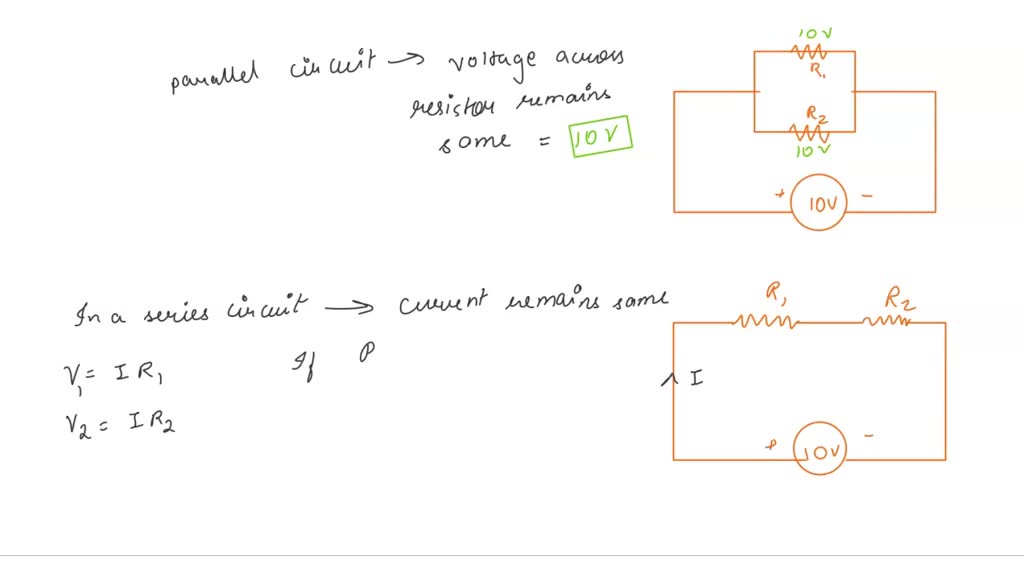 parallel circuit → voltage across
resistor remains
same = 10V
10V
R1
R2
10V
+ 10V -
In a series circuit → current remains same
V1 = I R1
If P
V2 = I R2
R1 R2
∧ I
+ 10V -